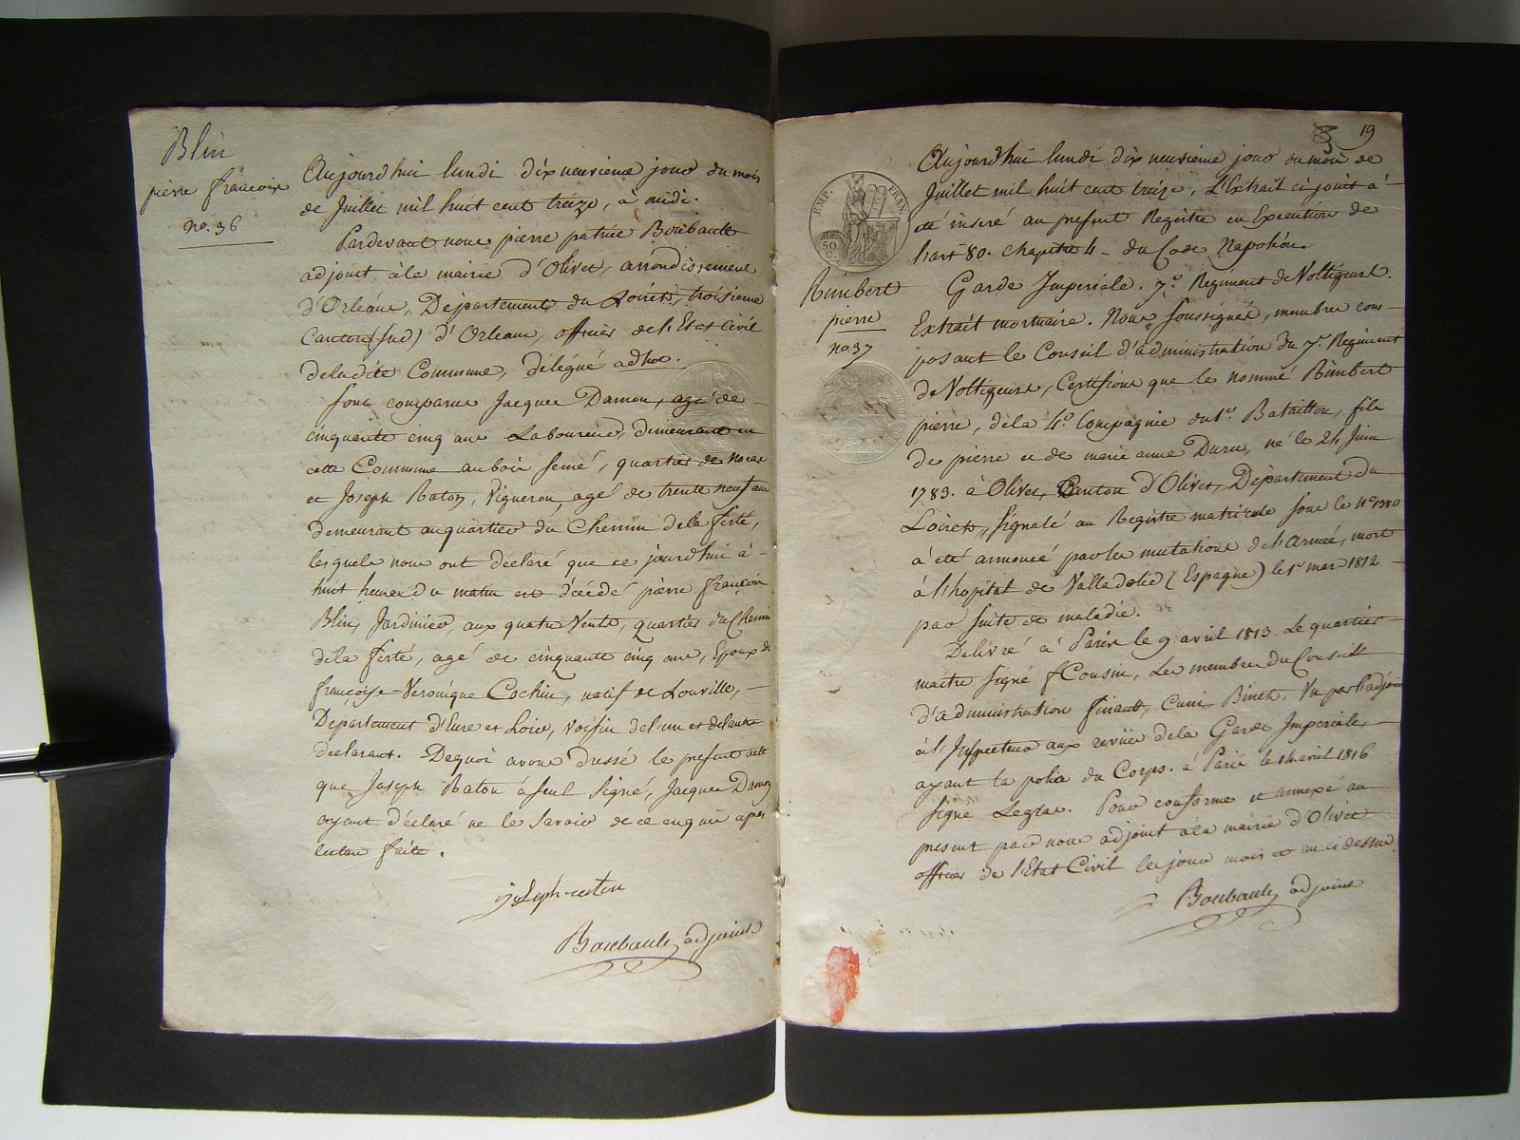 Blin
pierre françois
no. 36
Aujourd'hui lundi dix neuvieme jour du mois
de Juillet mil huit cent treize, à midi.
Pardevant nous pierre patrice Boubault
adjoint à la mairie d'Olivet, arrondissement
d'Orleans, Departement du Loiret, troisieme
Canton (sud) d'Orleans, officier de l'Etat Civil
de la dite Commune, délégué adhoc.
Sont comparus Jacques Damon, agé de
cinquante cinq ans Laboureur, demeurant en
cette Commune au bois semé, quartier de
et Joseph Raton, Vigneron, agé de trente neuf ans
demeurant au quartier du Chemin de la ferté,
lesquels nous ont déclaré que ce jourd'hui à
huit heures du matin est décédé pierre françois
Blin, Jardinier, aux quatre Vents, quartier du Chemin
de la ferté, agé de cinquante cinq ans, Epoux de
françoise Veronique Cochin, natif de Louville,
Departement d'Eure et Loire, voisin de l'un et de l'autre
declarant. Dequoi avons dressé le présent acte
que Joseph Raton a seul signé, Jacques Damon
ayant déclaré ne le savoir de ce enquis après
lecture faite.
Boubault adjoint
19
Aujourd'hui lundi dix neuvieme jour du mois de
Juillet mil huit cent treize, L'Extrait ci joint à
été inseré au present Registre en Execution de
l'art 80. chapitre 4 du Code Napoléon.
EMP. FRAN.
50
Rimbert
pierre
no 37
Garde Imperiale. 7e. Regiment de Voltigeurs.
Extrait mortuaire. Nous soussignés, membres com-
posant le Conseil d'administration du 7e. Regiment
de Voltigeurs, Certifions que le nommé Rimbert
pierre, de la 4e. Compagnie du 1er. Bataillon, fils
de pierre et de marie anne Duru, né le 24 Juin
1783. à Olivet, Canton d'Olivet, Département du
Loiret, signalé au Registre matricule sous le no
à été annoncé par les mutations de l'armée, mort
à l'hopital de Valladolid (Espagne) le 1er mars 1812
par suite de maladie.
Delivré à Paris le 9 avril 1813 Le quartier
maitre signé fCousin, Les membres du Conseil
d'administration Binet. Vu par l'adjoint
à l'Inspecteur aux revues de la Garde Imperiale
ayant la police du Corps. à Paris le avril
signé Legras. Pour conforme et annexé au
present par nous adjoint à la mairie d'Olivet
officier de l'Etat Civil les jour mois et an ci dessus.
Boubault adjoint